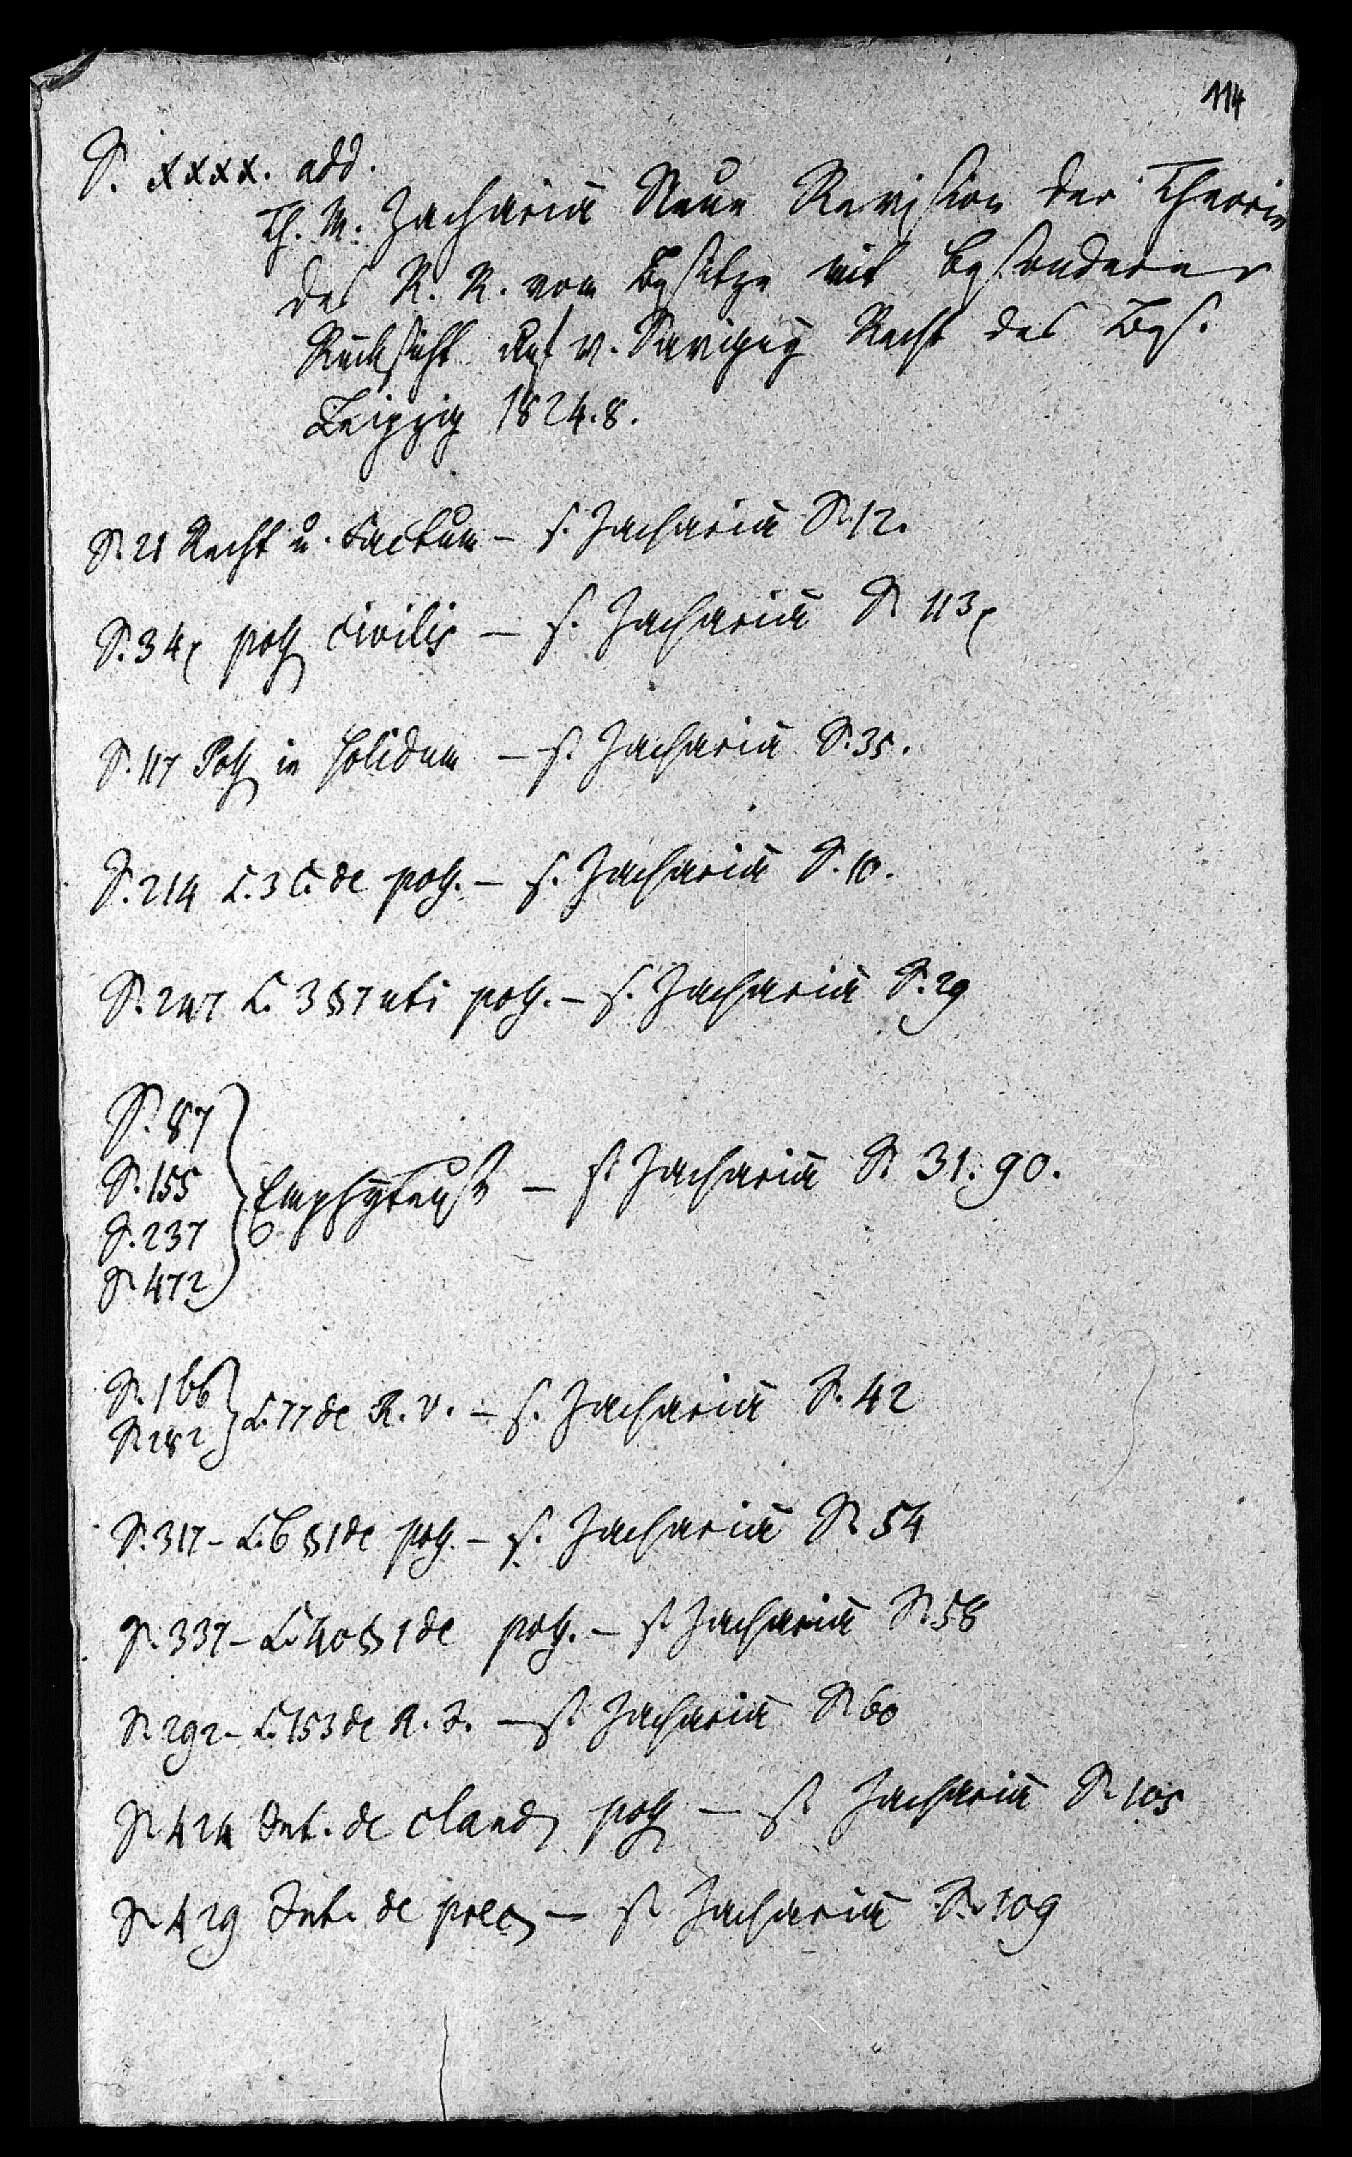 114
S. XXXX. add.
Th. M. Zachariä Neue Revision der Theorie
des R. R. vom Besitze mit besonderer
Rücksicht auf v. Savigny Recht des Bes.
Leipzig 1824. 8.
S. 21 Recht u. Factum – s. Zachariä S. 12.
S. 34 poss civilis – s. Zachariä S. 113
S. 117 Poss in solidum – s. Zachariä S. 35.
S. 214 L. 3 C. de poss. – s. Zachariä S. 10.
S. 247 L. 3 § 7 uti poss. – s. Zachariä S. 29
S. 87
S. 155
S. 237
S. 472
Emphyteust – s. Zachariä S. 31. 90.
S. 166
S. 282
L. 77 de R. V. – s. Zachariä S. 42
S. 317 – L. 6 § 1 de poss. – s. Zachariä S. 54
S. 337 – L. 40 § 1 de poss. – s. Zachariä S. 58
S. 292 – L. 153 de R. J. – s. Zachariä S. 60
S. 424 Int. de cland poss – s. Zachariä S. 105
S. 429 Int. de prec – s. Zachariä S. 109